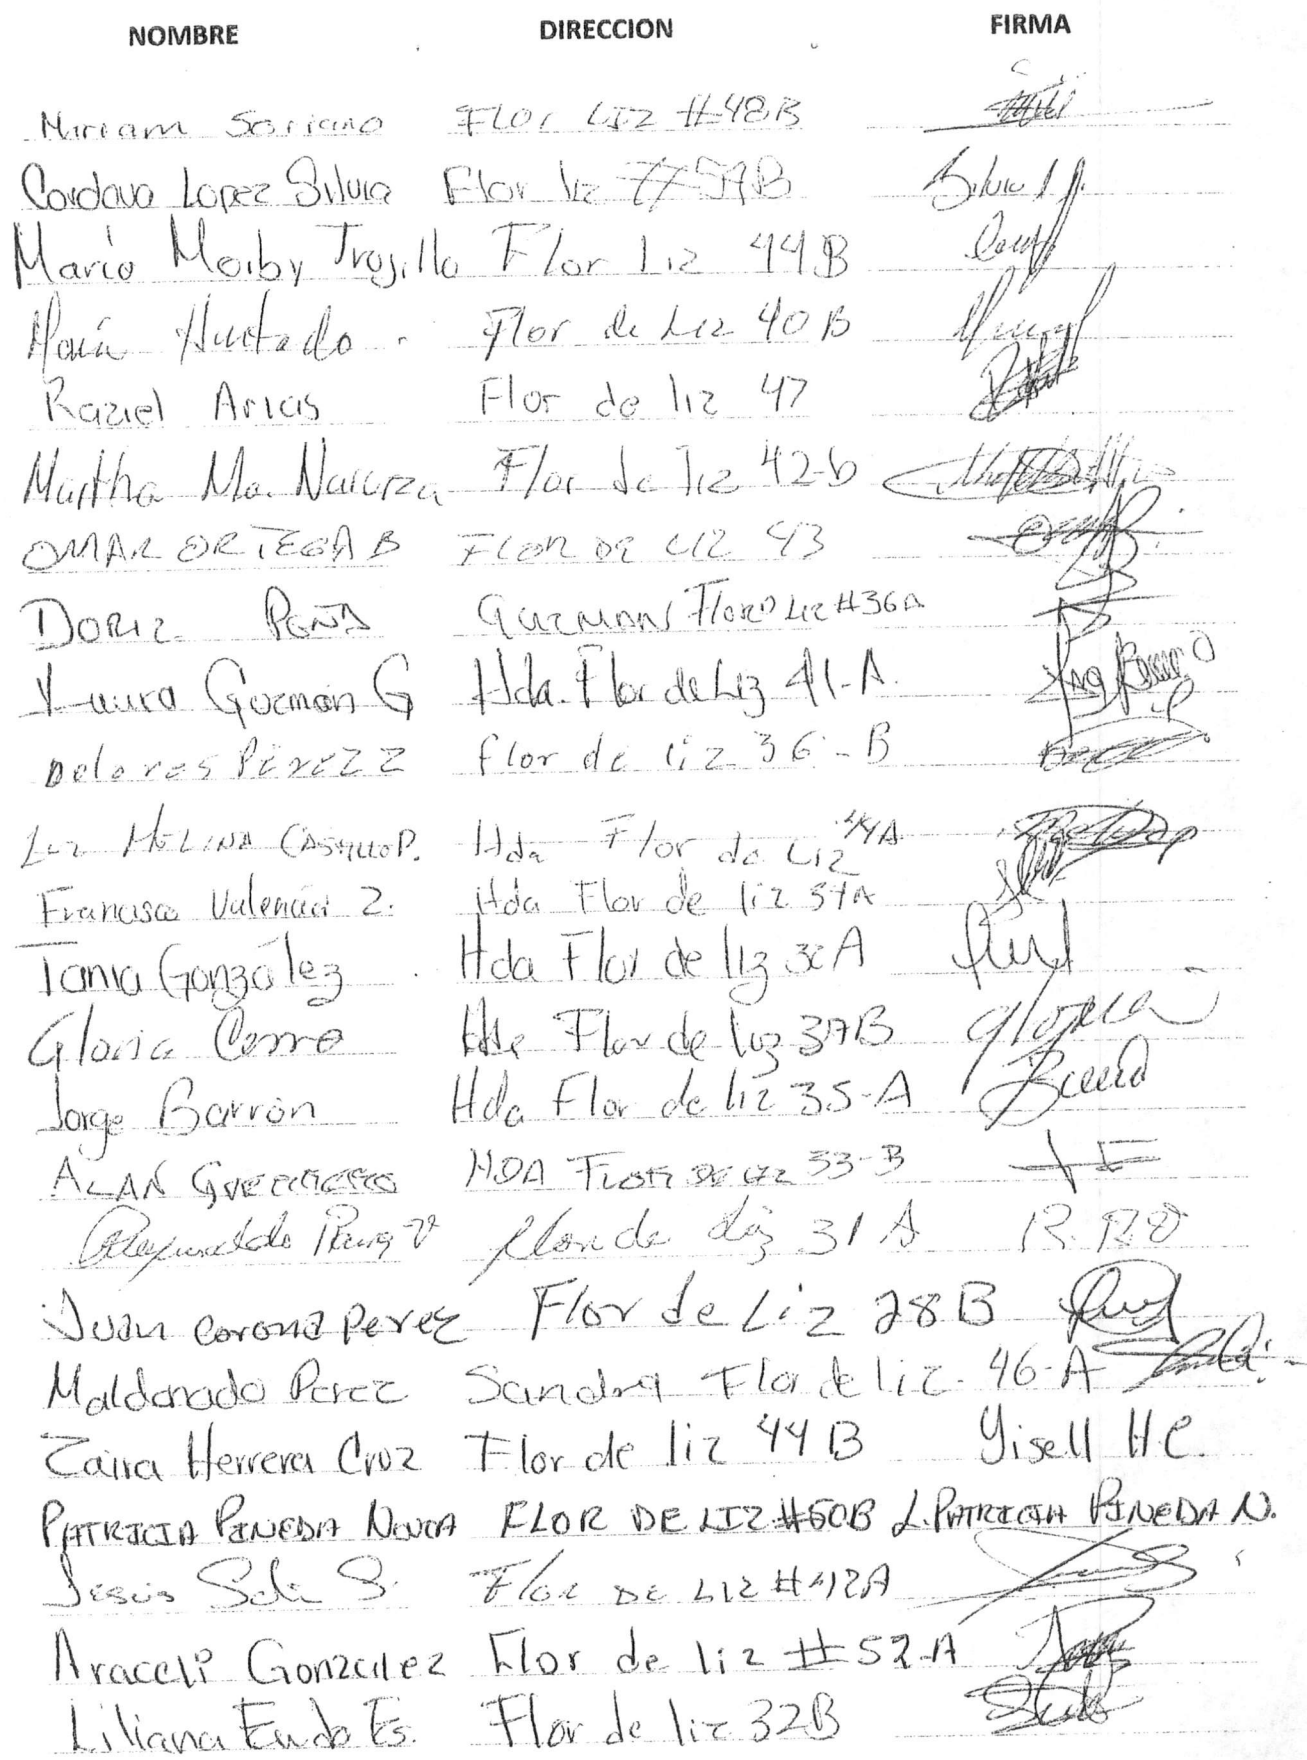 NOMBRE DIRECCION FIRMA
Miriam Soriano Flor LIZ #48B
Cordova Lopez Silvia Flor liz #59B Silvia
Mario Moiby Trujillo Flor Liz 44B
María Hurtado. Flor de Liz 40 B
Raziel Arias Flor de liz 47
Martha Ma. Flor de liz 42-b
OMAR ORTEGA B FLOR DE LIZ 43
DORIZ PEÑA GUZMAN Flor D Liz #36A
Laura Guzmán G Hda. Flor de Liz 41-A.
Dolores Pérez Z flor de liz 36-B
Liz MOLINA CASTILLO P. Hda Flor de Liz 44A
Francisco Valencia Z. Hda Flor de liz 37A
Tania González Hda Flor de liz A
Gloria Hda Flor de liz 37B gloria
Jorge Barrón Hda Flor de liz 35-A
ALAN GUERRERO HDA FLOR DE LIZ 33-B
flor de liz 31 A
Juan corona perez Flor de Liz 28B
Maldonado Perez Sandra Flor de liz. 46-A
Zaira Herrera Cruz Flor de liz 44B Yisell H.C.
PATRICIA PINEDA FLOR DE LIZ #50B L.PATRICIA PINEDA N.
Jesús S. Flor DE LIZ #42A
Araceli Gonzalez Flor de liz #52-A
Liliana Es. Flor de liz 32B